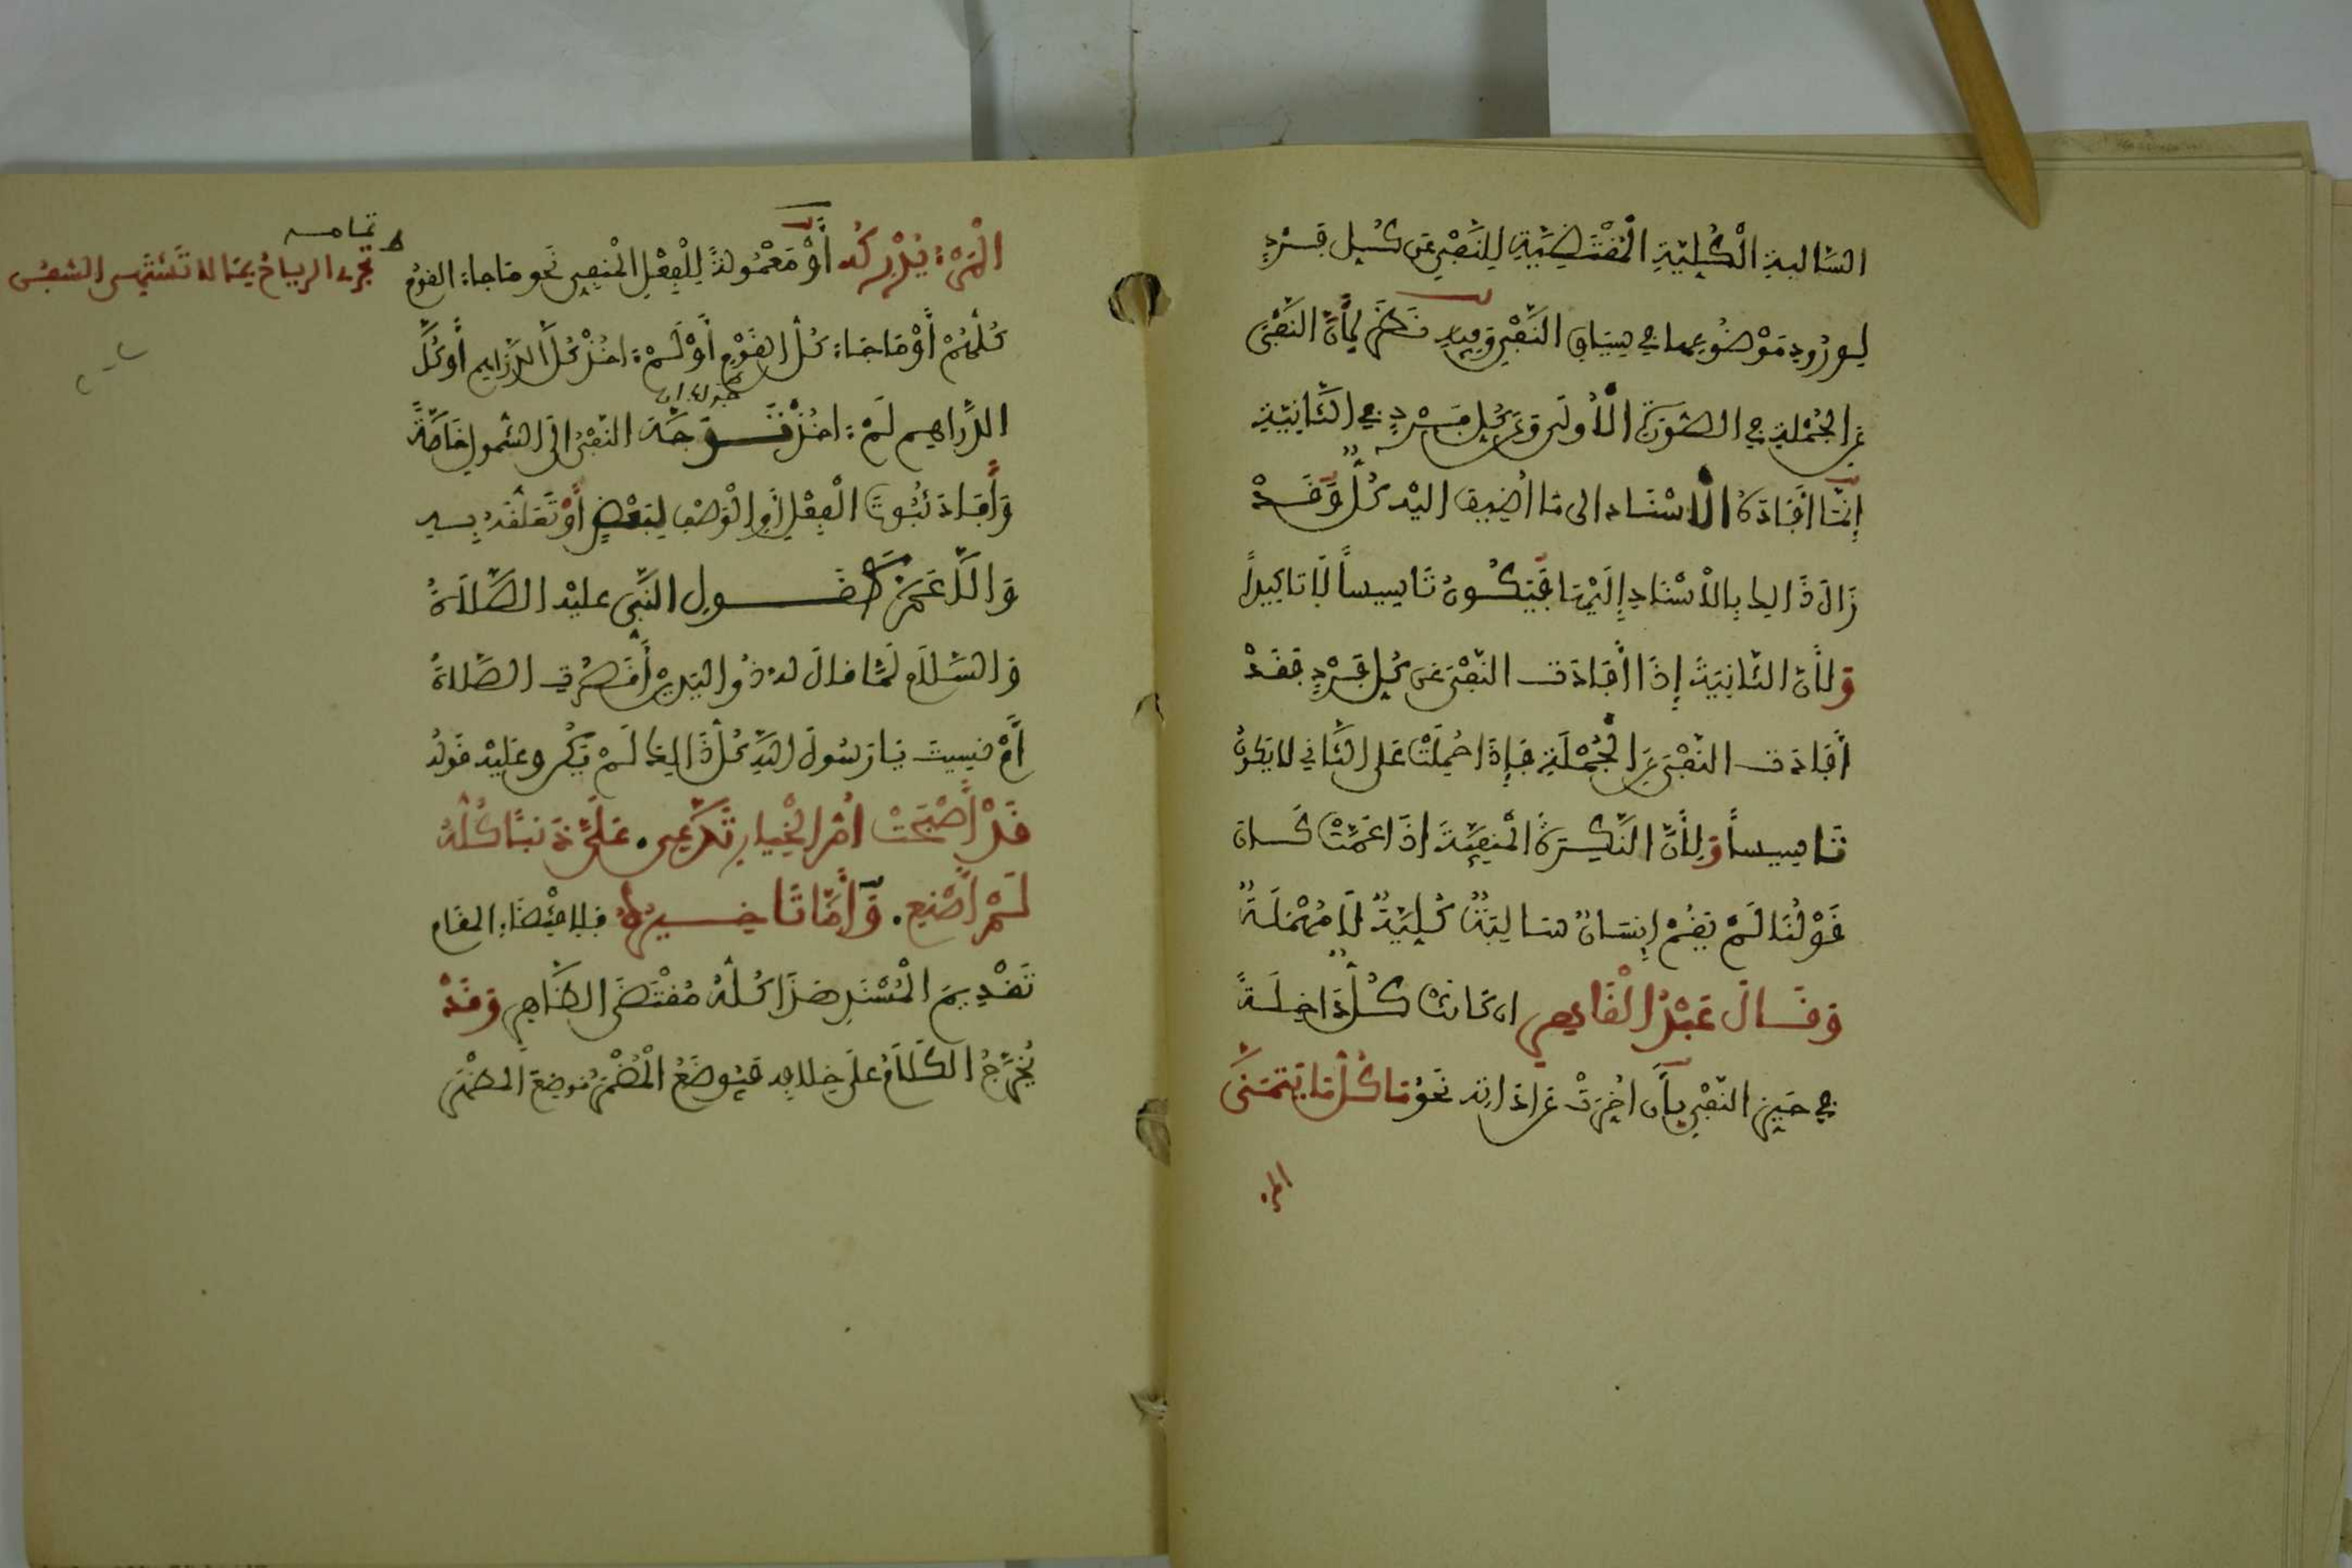 السَّالبةِ الْكُلِّيَّةِ الْمُقْتَضِيَّةِ لِلنَّفْيِ عَن كُلِ فَرْدٍ
لِوُرُودِ مَوْضُوعِهما في سِيَاقِ النَّفْيِ وَفِيهِ نَظَرٌ لِأَنَّ النَّفْىَ
عَنِ الجُمْلَةِ في الصُّورَةِ الْأُولَى وَعَن كُلِ فَرْدٍ في الثَّانِيَّةِ
إِنَّمَا أَفَادَهُ الْاسْنَاد الى مَا أُضِيفَ اليْهِ كُلٌّ وَقَدْ
زَالَ ذَالِكَ بِالْاسْنَادِ إِلَيْهَا فَيَكُونُ تَاسِيساً لَا تَاكِيداً
وَلأَنَّ الثَّانِيَةَ إِذَا أَفَادَت النَّفْىَ عَن كُلِ فَرْدٍ فَقَدْ
أَفَادَت النَّفْىَ عَنِ الْجُمْلَةِ فَإِذَا حُمِلَتْ عَلَى الثَّانِي لا يَكُونُ
تَاسِيساً وَلِأَنَّ النَّكِرَةَ الْمَنفِيَّةَ اذَا عَمَّتْ كَان
قَوْلُنَا لَمْ يَقُمْ إِنسَانٌ سَالِبَةً كُلِيَّةً لَا مُهْمَلَةً
وَقَالَ عَبْدُ الْقَاهِرِ ان كَانَتْ كُلُّ دَاخِلَةً
في حَيِّزِ النَّفْيِ بِأَن أُخِّرَتْ عَن اَدَاتِهِ نَحْوُ مَا كُلُّ مَا يَتَمَنَّى
المرء
الْمَرْءُ يُدْرِكُهُ أَوْ مَعْمُولَةً لِلْفِعْلِ الْمَنفِيِ نَحو مَا جاءَ القومُ
تمامه
تجرى الرياحُ بِمَا لا تَشْتَهِى السُّفُنُ
كُلُّهُمْ أَوْ مَا جَاءَ كُلُّ القَوْمِ أَوْ لَمْ ءَاخُذْ كُلَّ الدَّرَاهِمِ أَو كُلَّ
الدَّرَاهِم لَمْ ءَاخُذْ تَوَجَّهَ النَّفْىُ الَى الشُّمولِ خَاصَّةً
وَأَفَادَ ثُبُوتَ الْفِعْلِ أَوِ الْوَصْفِ لِبَعْضٍ أَوْ تَعَلُّقَهُ بِهِ
وَالَّا عَمَّ كَقَوْلِ النَّبِى عليْهِ الصَّلَاةُ
وَالسَّلَام لَمَّا قالَ لهُ ذُو اليَدَيْنِ أَقَصُرَتِ الصَّلاةُ
أَمْ نسِيتَ يَا رَسُولَ اللهِ كُلُّ ذَالِكَ لَمْ يَكُن وعَلَيْهِ قَولُهُ
قَدْ أَصْبَحَتْ أُمُّ الْخِيَارِ تَدَّعِى. عَلَىَّ ذَنبًا كُلُّهُ
لَمْ أَصْنَعِ. وَأَمَّا تَاخِيرُهُ فَلِاقْتِضَاءِ المقَامِ
تَقْدِيمَ الْمُسْنَدِ هَذَا كُلُّهُ مُقْتَضَى الظَّاهِرِ وَقَدْ
يُخَرَّجُ الْكَلَامُ عَلَى خِلَافِهِ فَيُوضَعُ الْمُضْمَرُ مَوضِعَ المظْهَرِ